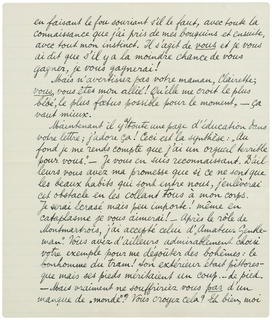 en faisant le fou souriant s'il le faut, avec toute la
connaissance que j'ai pris de mes bouquins et ensuite,
avec tout mon instinct. Il s'agit de vous et je vous
ai dit que s'il y a la moindre chance de vous
gagner, je vous gagnerai!
Mais n'avertissez pas votre maman, Clairette;
vous, vous êtes mon allié! Qu'elle me croit le plus
bébé, le plus fœtus possible pour le moment, — ça
vaut mieux.
Maintenant il y a toute une page d'éducation dans
votre lettre; j'adore ça! Ceci est la synthèse: "Au
fond je me rends compte que j'ai un orgueil terrible
pour vous." — Je vous en suis reconnaissant. D'ail-
leurs vous avez ma promesse que si ce ne sont que
les beaux habits qui sont entre nous, j'enlèverai
cet obstacle en les collant tous à mon corps.
Je serai écrasé mais peu importe! même en
cataplasme je vous aimerai! — Après le rôle de
Montmartrois, j'ai accepté celui d'Amateur Gentle-
man! Vous avez d'ailleurs admirablement choisi
votre exemple pour me dégoûter des bohèmes: le
bonhomme du tram! Son extérieur était pittores-
que mais ses pieds méritaient un coup... de pied.
— Mais vraiment ne souffririez vous pas d'un
manque de "monde"? Vous croyez cela? Et bien, moi